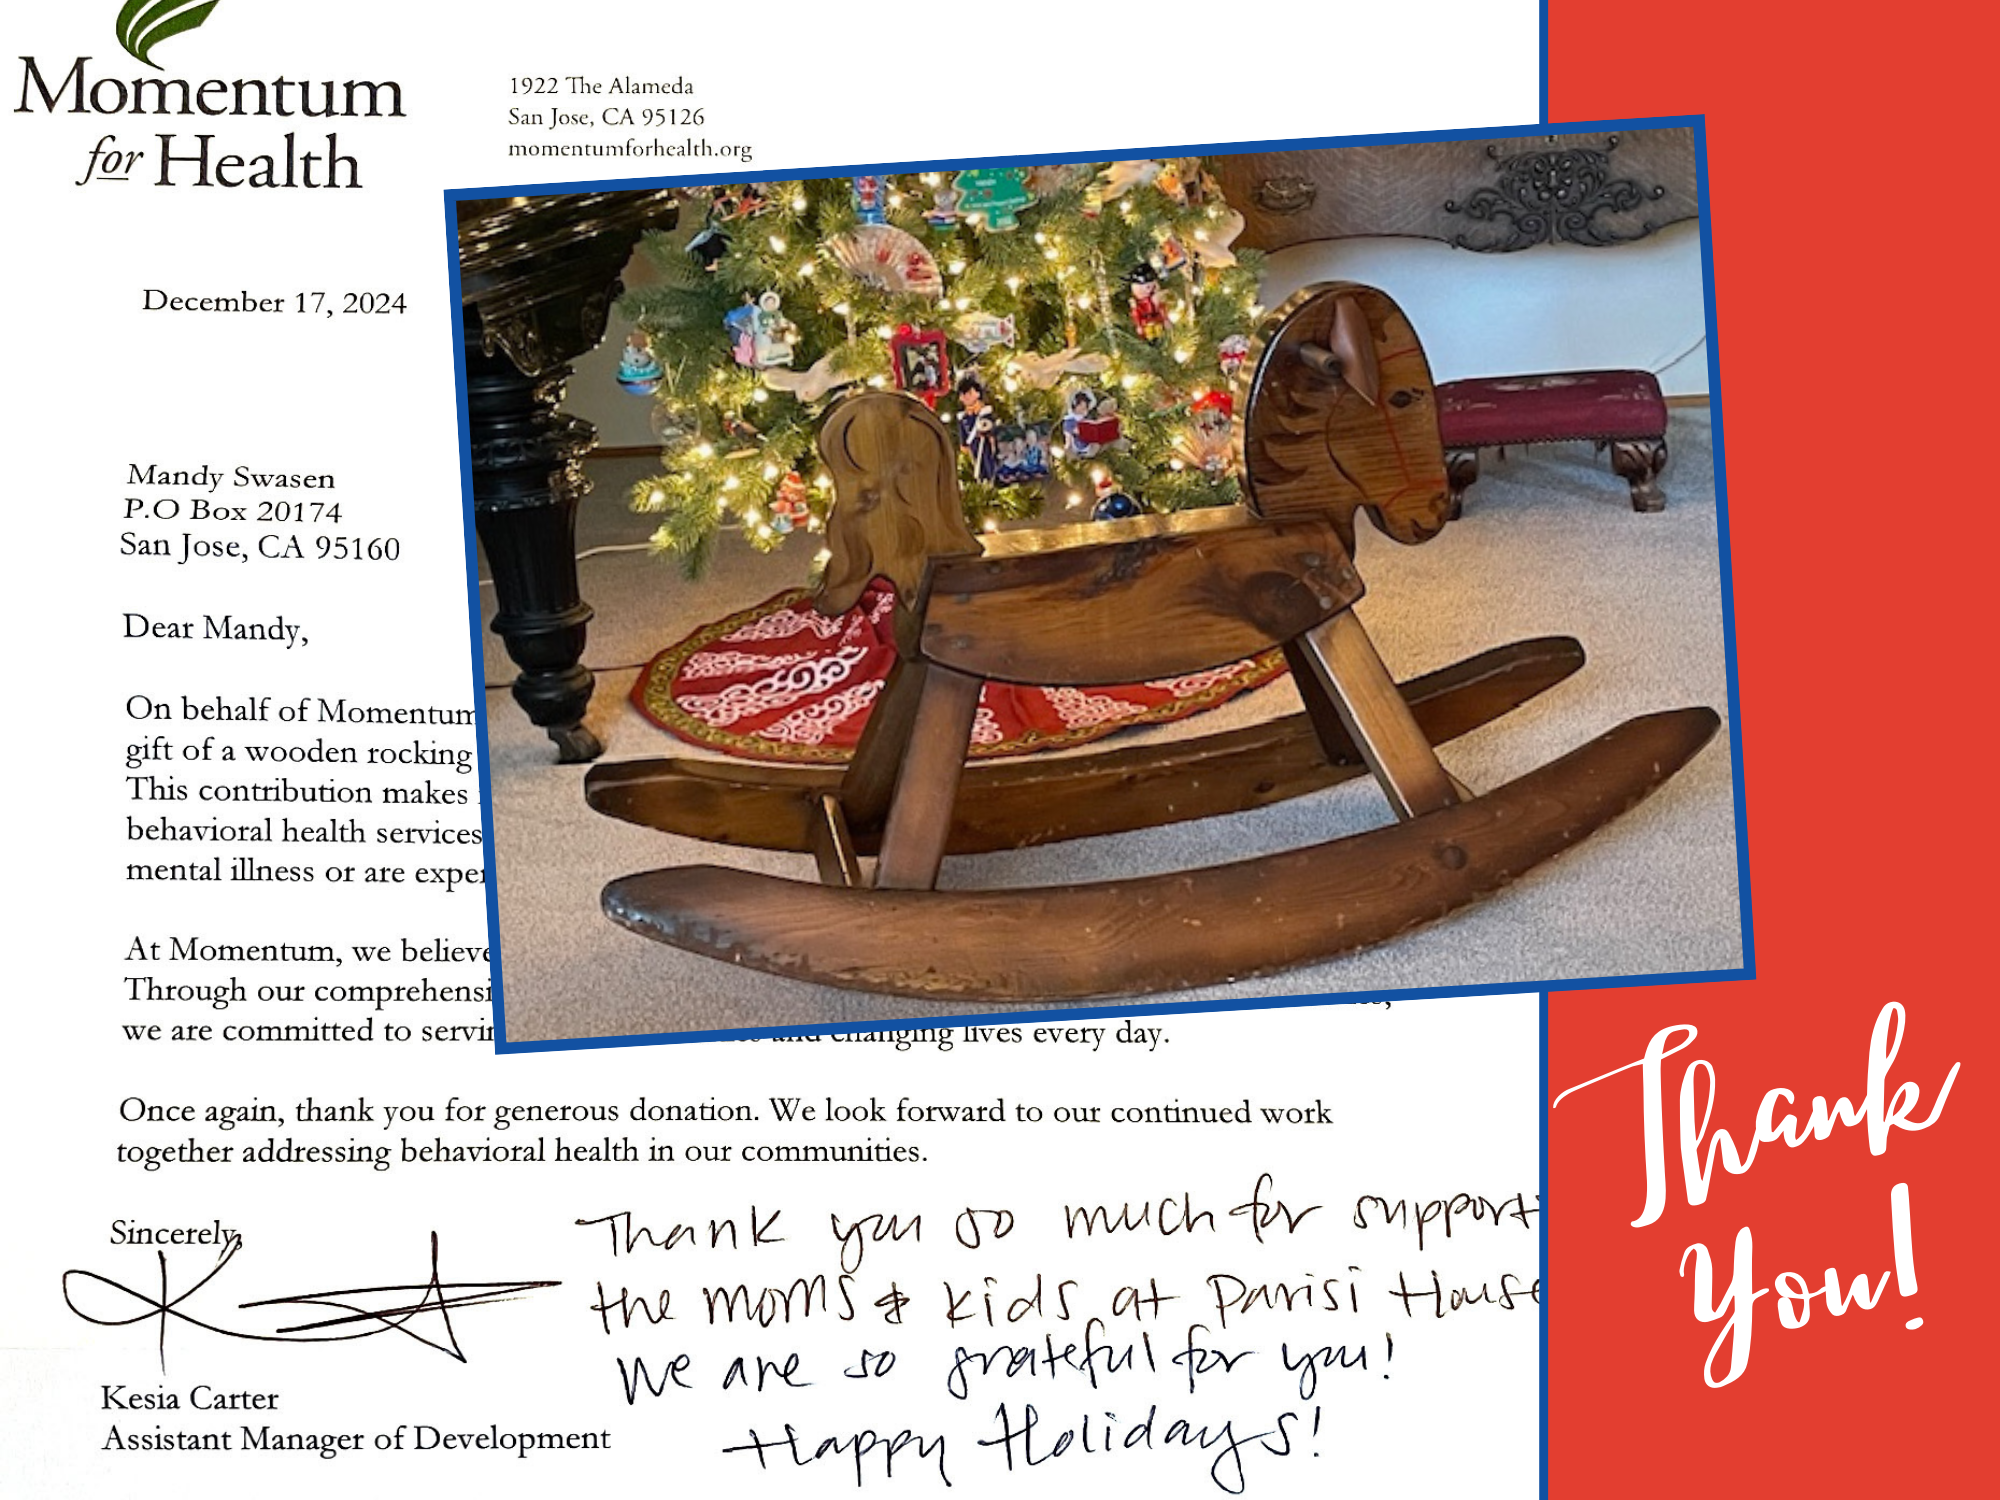 Momentum
for Health
1922 The Alameda
San Jose, CA 95126
momentumforhealth.org
December 17, 2024
Mandy Swasen
P.O Box 20174
San Jose, CA 95160
Dear Mandy,
On behalf of Momentum
gift of a wooden rocking
This contribution makes
behavioral health services
mental illness or are
At Momentum, we believe
Through our
we are committed to
and changing lives every day.
Once again, thank you for generous donation. We look forward to our continued work
together addressing behavioral health in our communities.
Sincerely,
Thank you so much for support
the moms & kids at Parisi House
We are so grateful for you!
Happy Holidays!
Kesia Carter
Assistant Manager of Development
Thank
You!